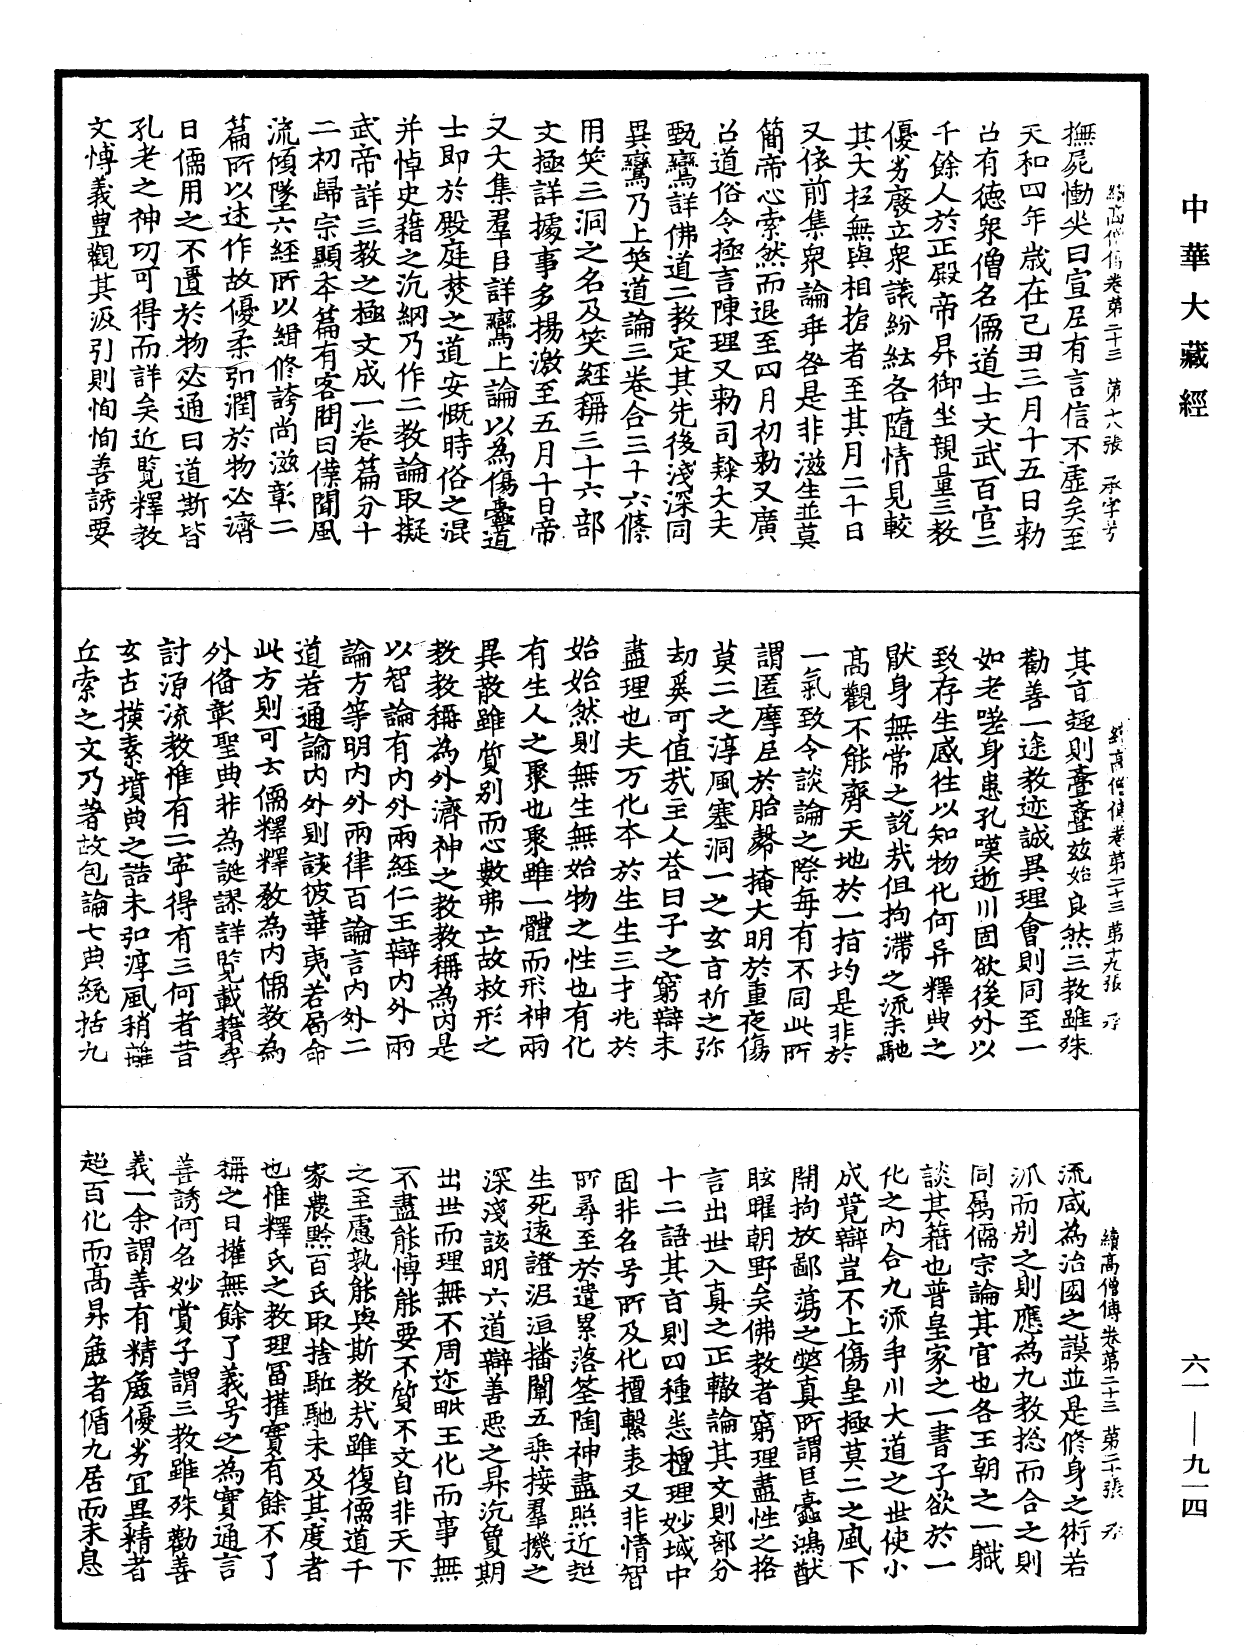 中華大藏經
撫屍慟哭曰宣尼有言信不虛矣至
續高僧傳卷第二十三 第十八張 承字号
天和四年歲在己丑三月十五日勅
召有德衆僧名儒道士文武百官二
千餘人於正殿帝昇御坐親量三教
優劣廢立衆議紛紜各隨情見較
其大抵無與相搶者至其月二十日
又依前集衆論乖咎是非滋生並莫
簡帝心索然而退至四月初勅又廣
召道俗令極言陳理又勅司隸大夫
甄鸞詳佛道二教定其先後淺深同
異鸞乃上笑道論三卷合三十六條
用笑三洞之名及笑經稱三十六部
文極詳據事多揚激至五月十日帝
又大集羣臣詳鸞上論以為傷蠹道
士即於殿庭焚之道安慨時俗之混
并悼史藉之沉網乃作二教論取擬
武帝詳三教之極文成一卷篇分十
二初歸宗顯本篇有客問曰僕聞風
流傾墜六經所以緝修誇尚滋彰二
篇所以述作故優柔弘潤於物必濟
曰儒用之不匱於物必通曰道斯皆
孔老之神功可得而詳矣近覽釋教
文博義豊觀其汲引則恂恂善誘要
其旨趣則亹亹茲始良然三教雖殊
續高僧傳卷第二十三 第十九張 承
勸善一途教迹誠異理會則同至一
如老嗟身患孔嘆逝川固欲後外以
致存生感往以知物化何异釋典之
猒身無常之說哉但拘滯之流未馳
高觀不能齊天地於一指均是非於
一氣致令談論之際每有不同此所
謂匿摩尼於胎㲉掩大明於重夜傷
莫二之淳風塞洞一之玄旨祈之弥
劫奚可值哉主人荅曰子之窮辯未
盡理也夫万化本於生生三才兆於
始始然則無生無始物之性也有化
有生人之聚也聚雖一體而形神兩
異散雖質別而心數弗亡故救形之
教教稱為外濟神之教教稱為內是
以智論有內外兩經仁王辯內外兩
論方等明內外兩律百論言內外二
道若通論內外則該彼華夷若局命
此方則可云儒釋釋教為內儒教為
外俻彰聖典非為誕謬詳覽載籍尋
討源流教惟有二寧得有三何者昔
玄古撲素墳典之誥未弘淳風稍離
丘索之文乃著故包論七典統括九
流咸為治國之謨並是修身之術若
續高僧傳卷第二十三 第二十張 承
派而別之則應為九教捴而合之則
同屬儒宗論其官也各王朝之一職
談其籍也普皇家之一書子欲於一
化之內合九流爭川大道之世使小
成競辯豈不上傷皇極莫二之風下
開拘放鄙蕩之弊真所謂巨蠹鴻猷
眩曜朝野矣佛教者窮理盡性之格
言出世入真之正轍論其文則部分
十二語其旨則四種悉檀理妙域中
固非名号所及化擅繫表又非情智
所尋至於遣累落筌陶神盡照近超
生死遠證泥洹播闡五乗接羣機之
深淺該明六道辯善惡之昇沉夐期
出世而理無不周迩毗王化而事無
不盡能博能要不質不文自非天下
之至慮孰能與斯教哉雖復儒道千
家農黔百氏取捨駈馳未及其度者
也惟釋氏之教理冨攉實有餘不了
稱之曰攉無餘了義号之為實通言
善誘何名妙賞子謂三教雖殊勸善
義一余謂善有精麁優劣冝異精者
超百化而高昇麁者循九居而未息
六一—九一四